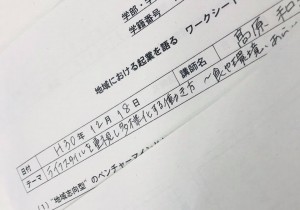 学部・学
学籍番号
地域における起業を語る ワークシート
日付 H30年12月18日 講師名 高原 和
テーマ ライフスタイルを重視し多様化する働き方 ～食や環境、
(1) "地域志向型"のベンチャー